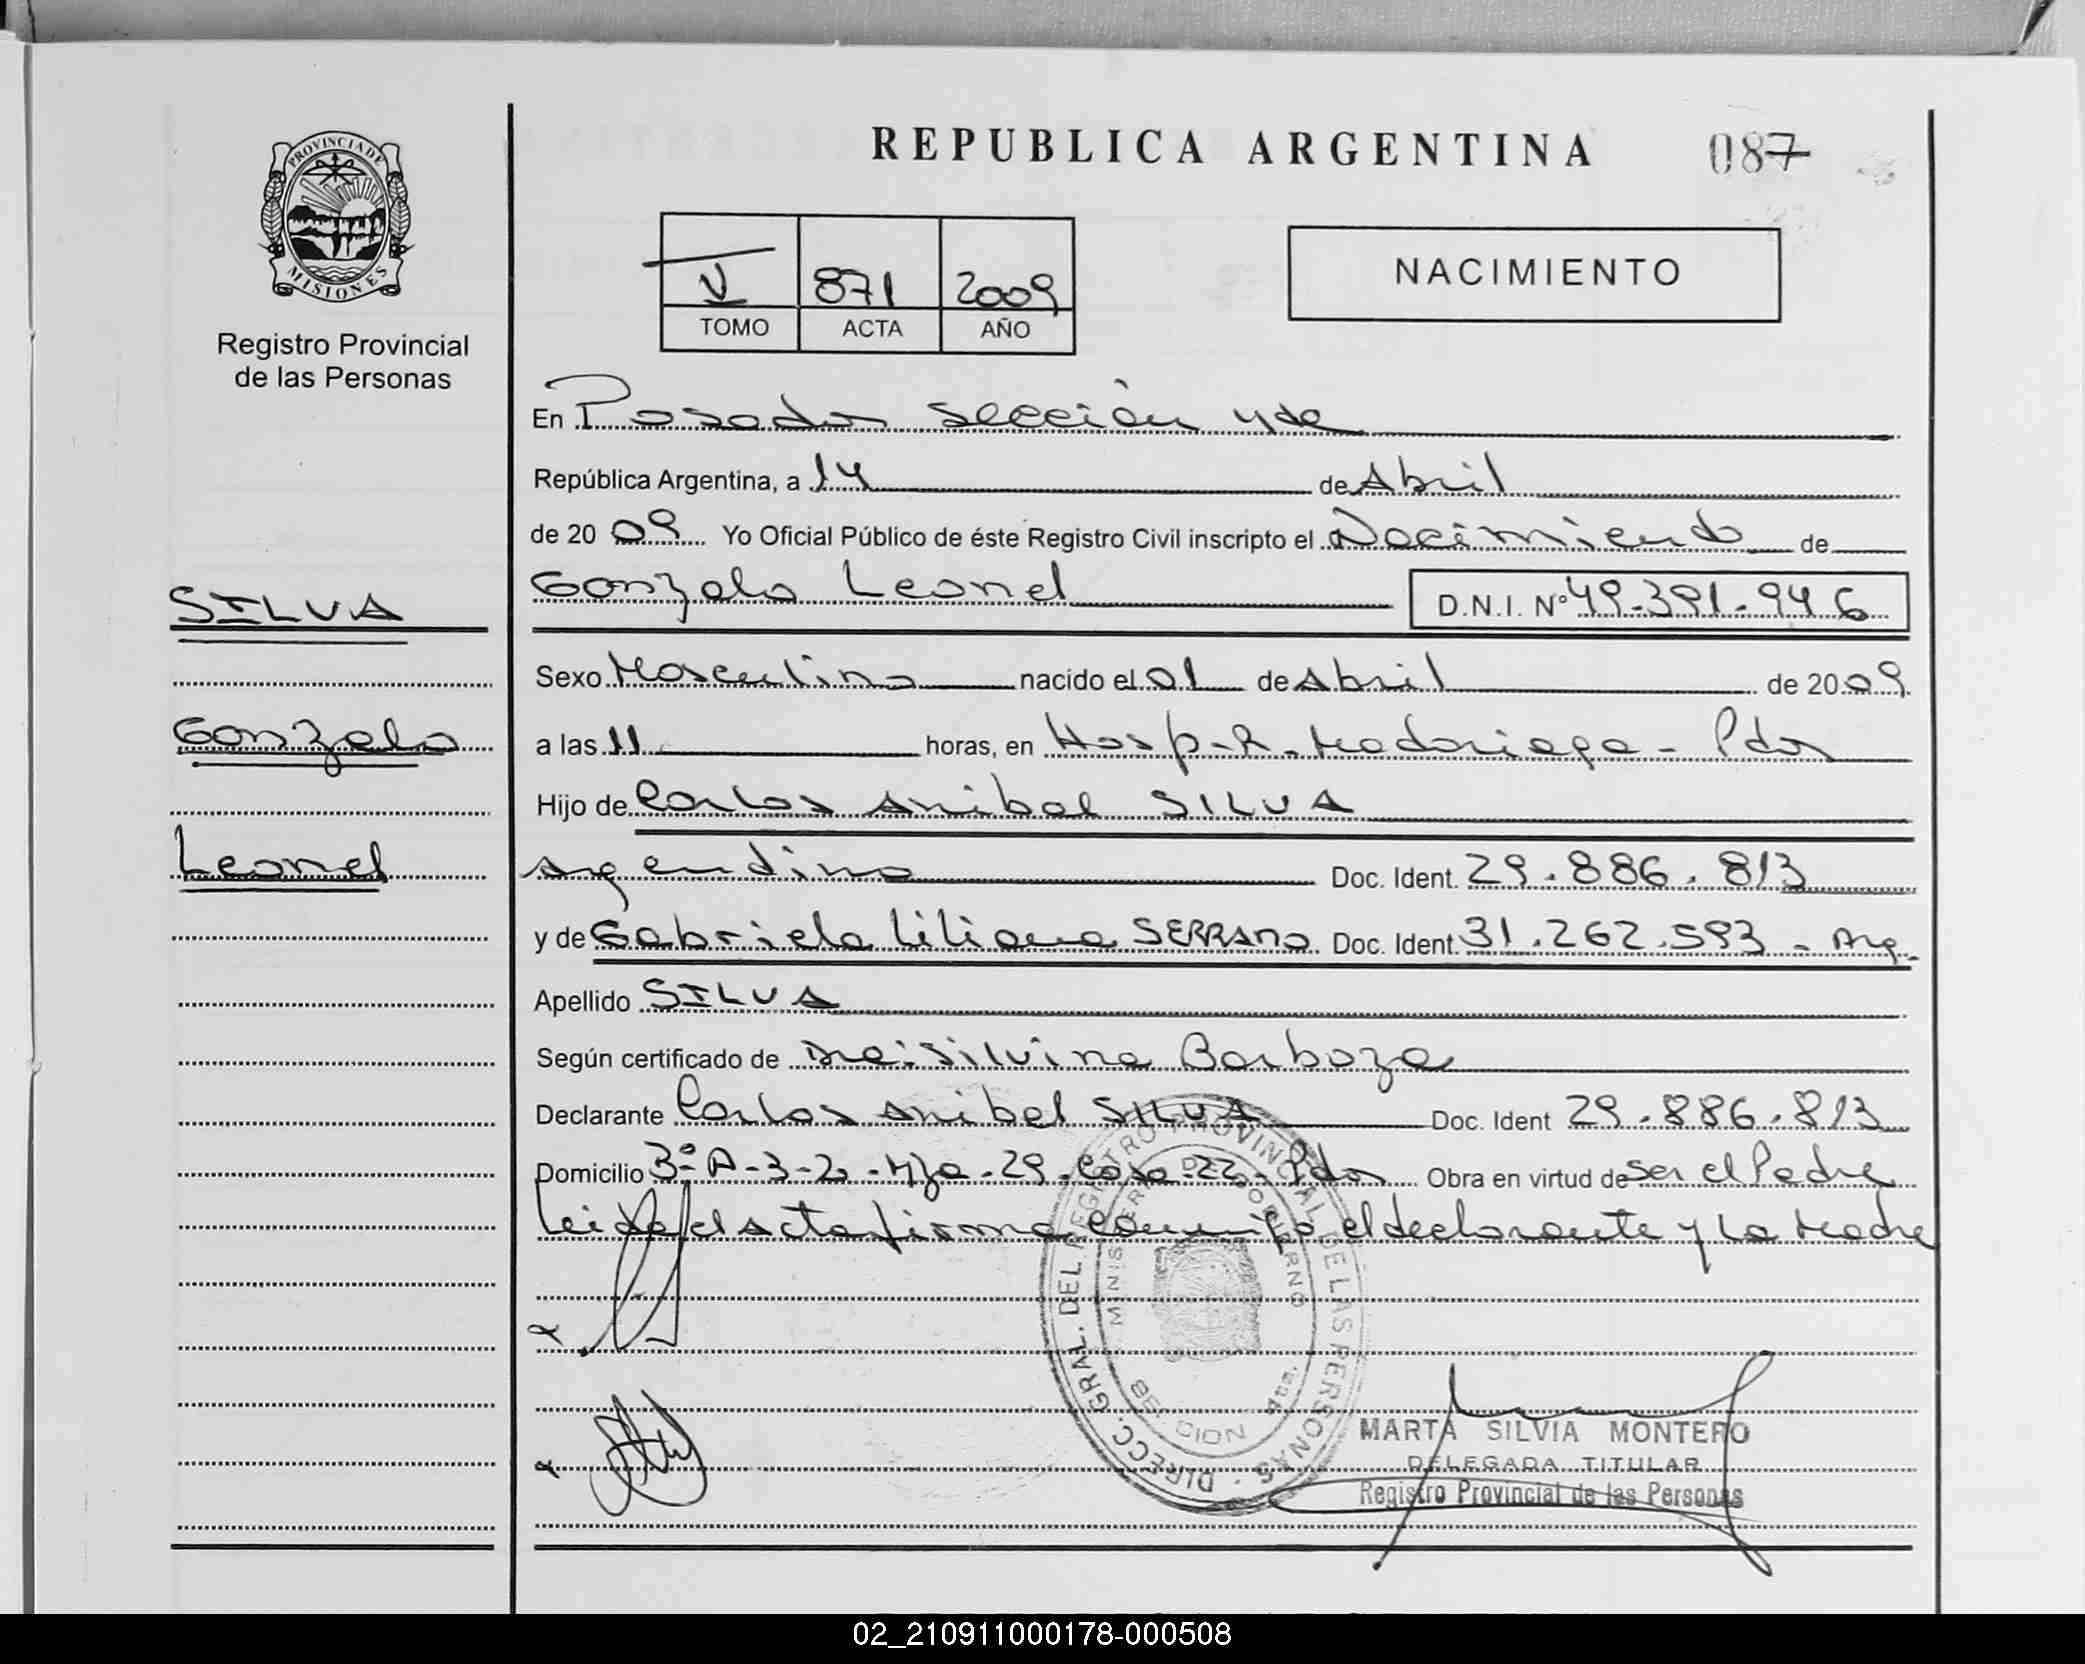 REPUBLICA ARGENTINA
087
PROVINCIA DE
MISIONES
Registro Provincial
de las Personas
V 871 2009
TOMO ACTA AÑO
NACIMIENTO
En Posadas sección 4ta
República Argentina, a 14 de Abril
de 20 09 Yo Oficial Público de éste Registro Civil inscripto el Nacimiento de
Gonzalo Leonel D.N.I. Nº 49.391.946
SILVA
Sexo Masculino nacido el 01 de Abril de 20 09
Gonzalo
a las 11 horas, en Hosp-R-Madariaga-Pdas
Hijo de Carlos Anibal SILVA
Leonel
Argentino Doc. Ident. 29.886.813
y de Gabriela Liliana SERRANO Doc. Ident. 31.262.593 - Arg.
Apellido SILVA
Según certificado de Dra: Silvina Barboza
Declarante Carlos Anibal SILVA Doc. Ident 29.886.813
Domicilio 3º-A-3-2-Mza-29-Casa-22-Pdas Obra en virtud de ser el Padre
Leida el acta firma conmigo el declarante y la Madre
DIRECC. GRAL. DEL REGISTRO PROVINCIAL DE LAS PERSONAS
MINISTERIO DE GOBIERNO
4ta.
MARTA SILVIA MONTERO
DELEGADA TITULAR
Registro Provincial de las Personas
02_210911000178-000508